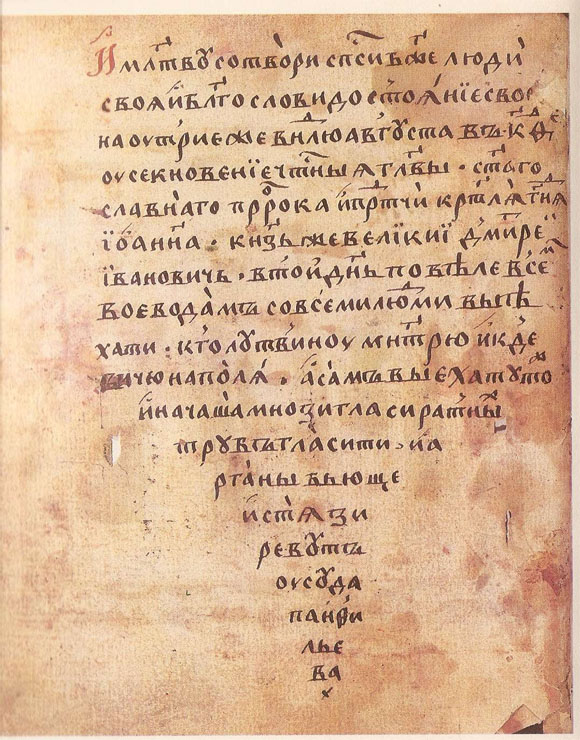 И мл҃твꙋ сотвори сп҃си бж҃е люди
своя и бл҃гослови достоѧнїе свое
на оутрие же в н҃лю августа въ к҃ѳ де
оусекновенїе чⷭ҇тныѧ главы ст҃аго
славнаго прⷪ҇рока и прⷣтчи крⷭ҇тлѧ г҃нѧ
їѡанна · кн҃зь же великиї дмⷮреї
їванович · в той дн҃ь повѣле всеⷨ
воеводамъ со всеми людⷨи выѣ
хати · к голутвину митрю и к дѣ
вичю на полѧ · а самъ выеха ту тоⷤ
и начаша мнози гласи ратныⷯ
трубъ гласити · и а
рганы бьюще
и стѧзи
ревутъ
оу сада
панфи
лье
ва
х